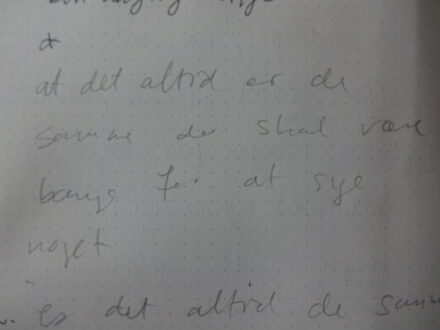 at det altid er de
samme der skal være
bange for at sige
noget
er det altid de samm